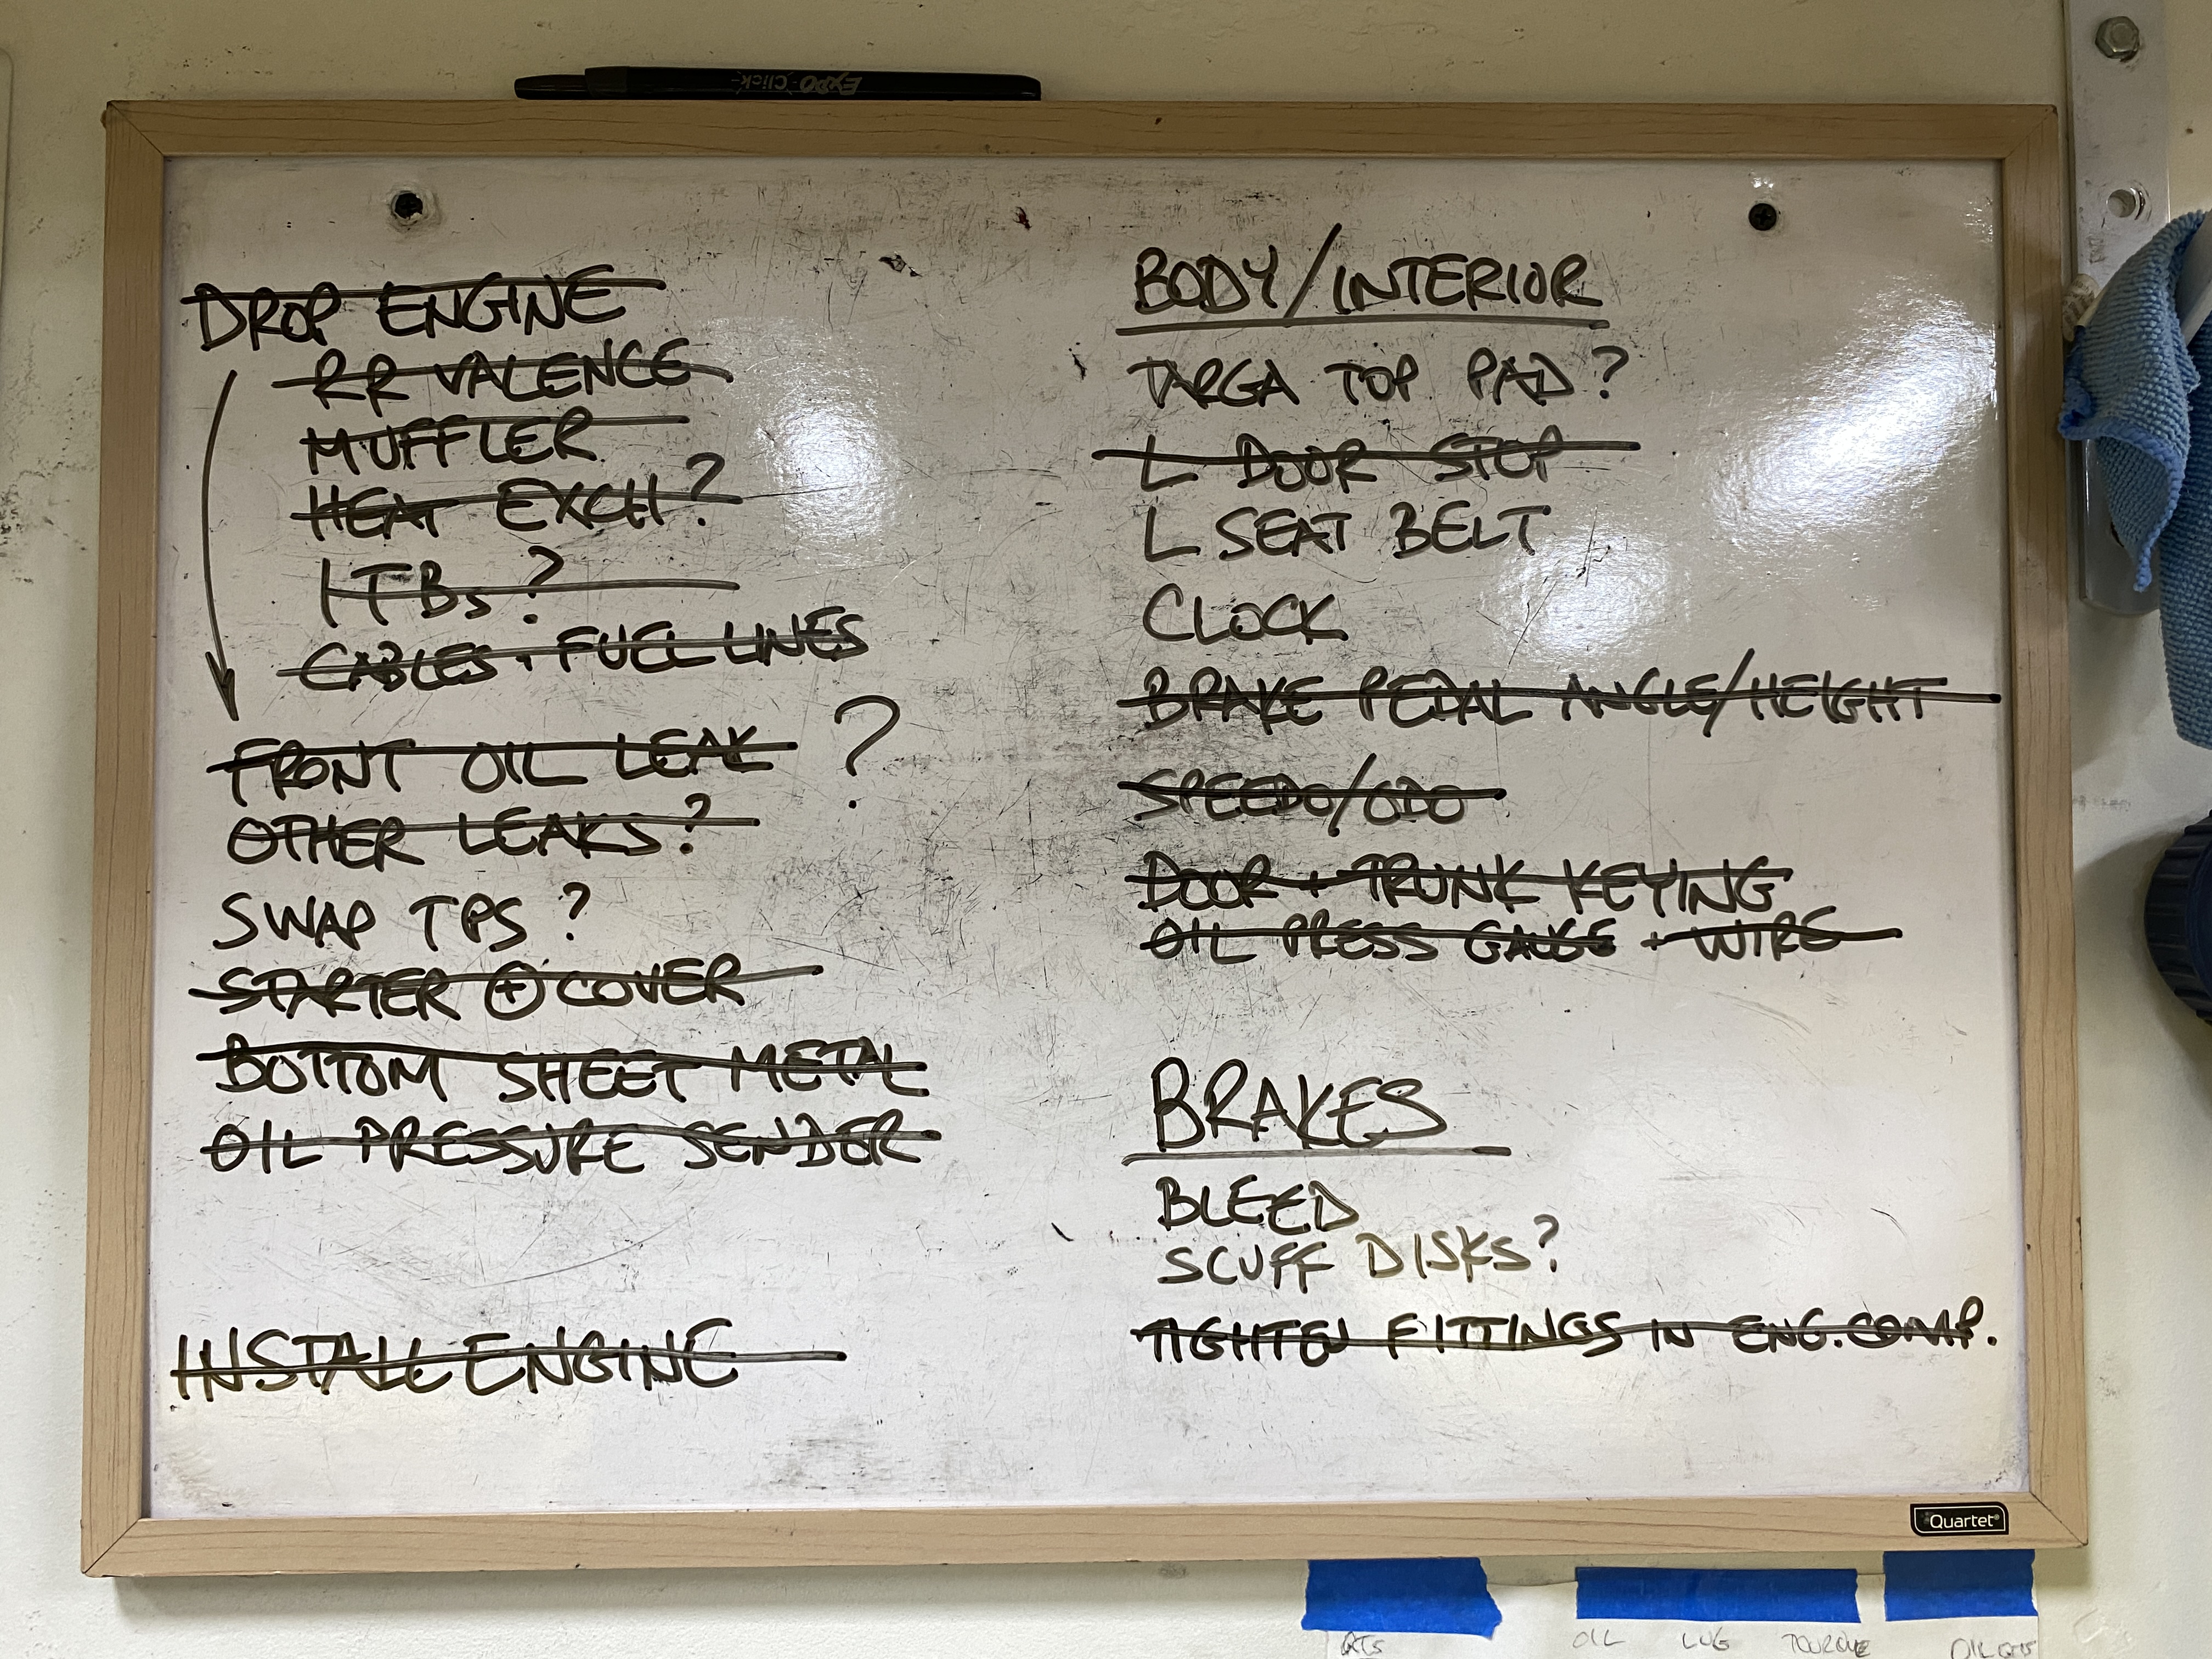 EXPO Click
DROP ENGINE
RR VALENCE
MUFFLER
HEAT EXCH?
ITBs?
CABLES + FUEL LINES
FRONT OIL LEAK ?
OTHER LEAKS?
SWAP TPS?
STARTER + COVER
BOTTOM SHEET METAL
OIL PRESSURE SENDER
INSTALL ENGINE
BODY/INTERIOR
TARGA TOP PAD?
L DOOR STOP
L SEAT BELT
CLOCK
BRAKE PEDAL ANGLE/HEIGHT
SPEEDO/ODO
DOOR + TRUNK KEYING
OIL PRESS GAUGE + WIRE
BRAKES
BLEED
SCUFF DISKS?
TIGHTEN FITTINGS IN ENG. COMP.
Quartet
OIL LUG TOURQUE OIL QTS